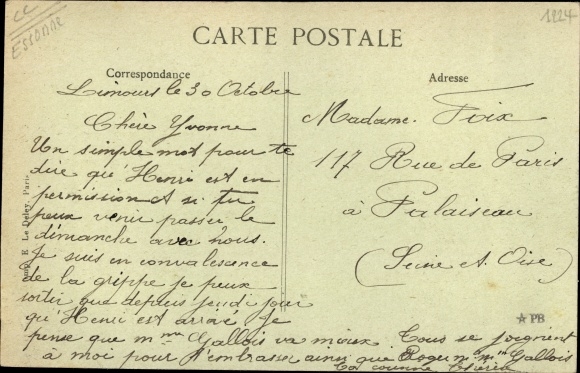 CC
ESSONNE
1224
CARTE POSTALE
Correspondance
Limours le 30 Octobre
Chère Yvonne
Un simple mot pour te
dire qu'Henri est en
permission et si tu
peux venir passer le
dimanche avec nous.
Je suis en convalescence
de la grippe je peux
sortir que depuis jeudi jour
qu'Henri est arrivé. Je
pense que mme Gallois va mieux. Tous se joignent
à moi pour t'embrasser ainsi que Roger m mme Gallois
Ta cousine
E. Le Deley, Paris
Adresse
Madame Foix
117 Rue de Paris
à Palaiseau
(Seine et Oise)
★PB